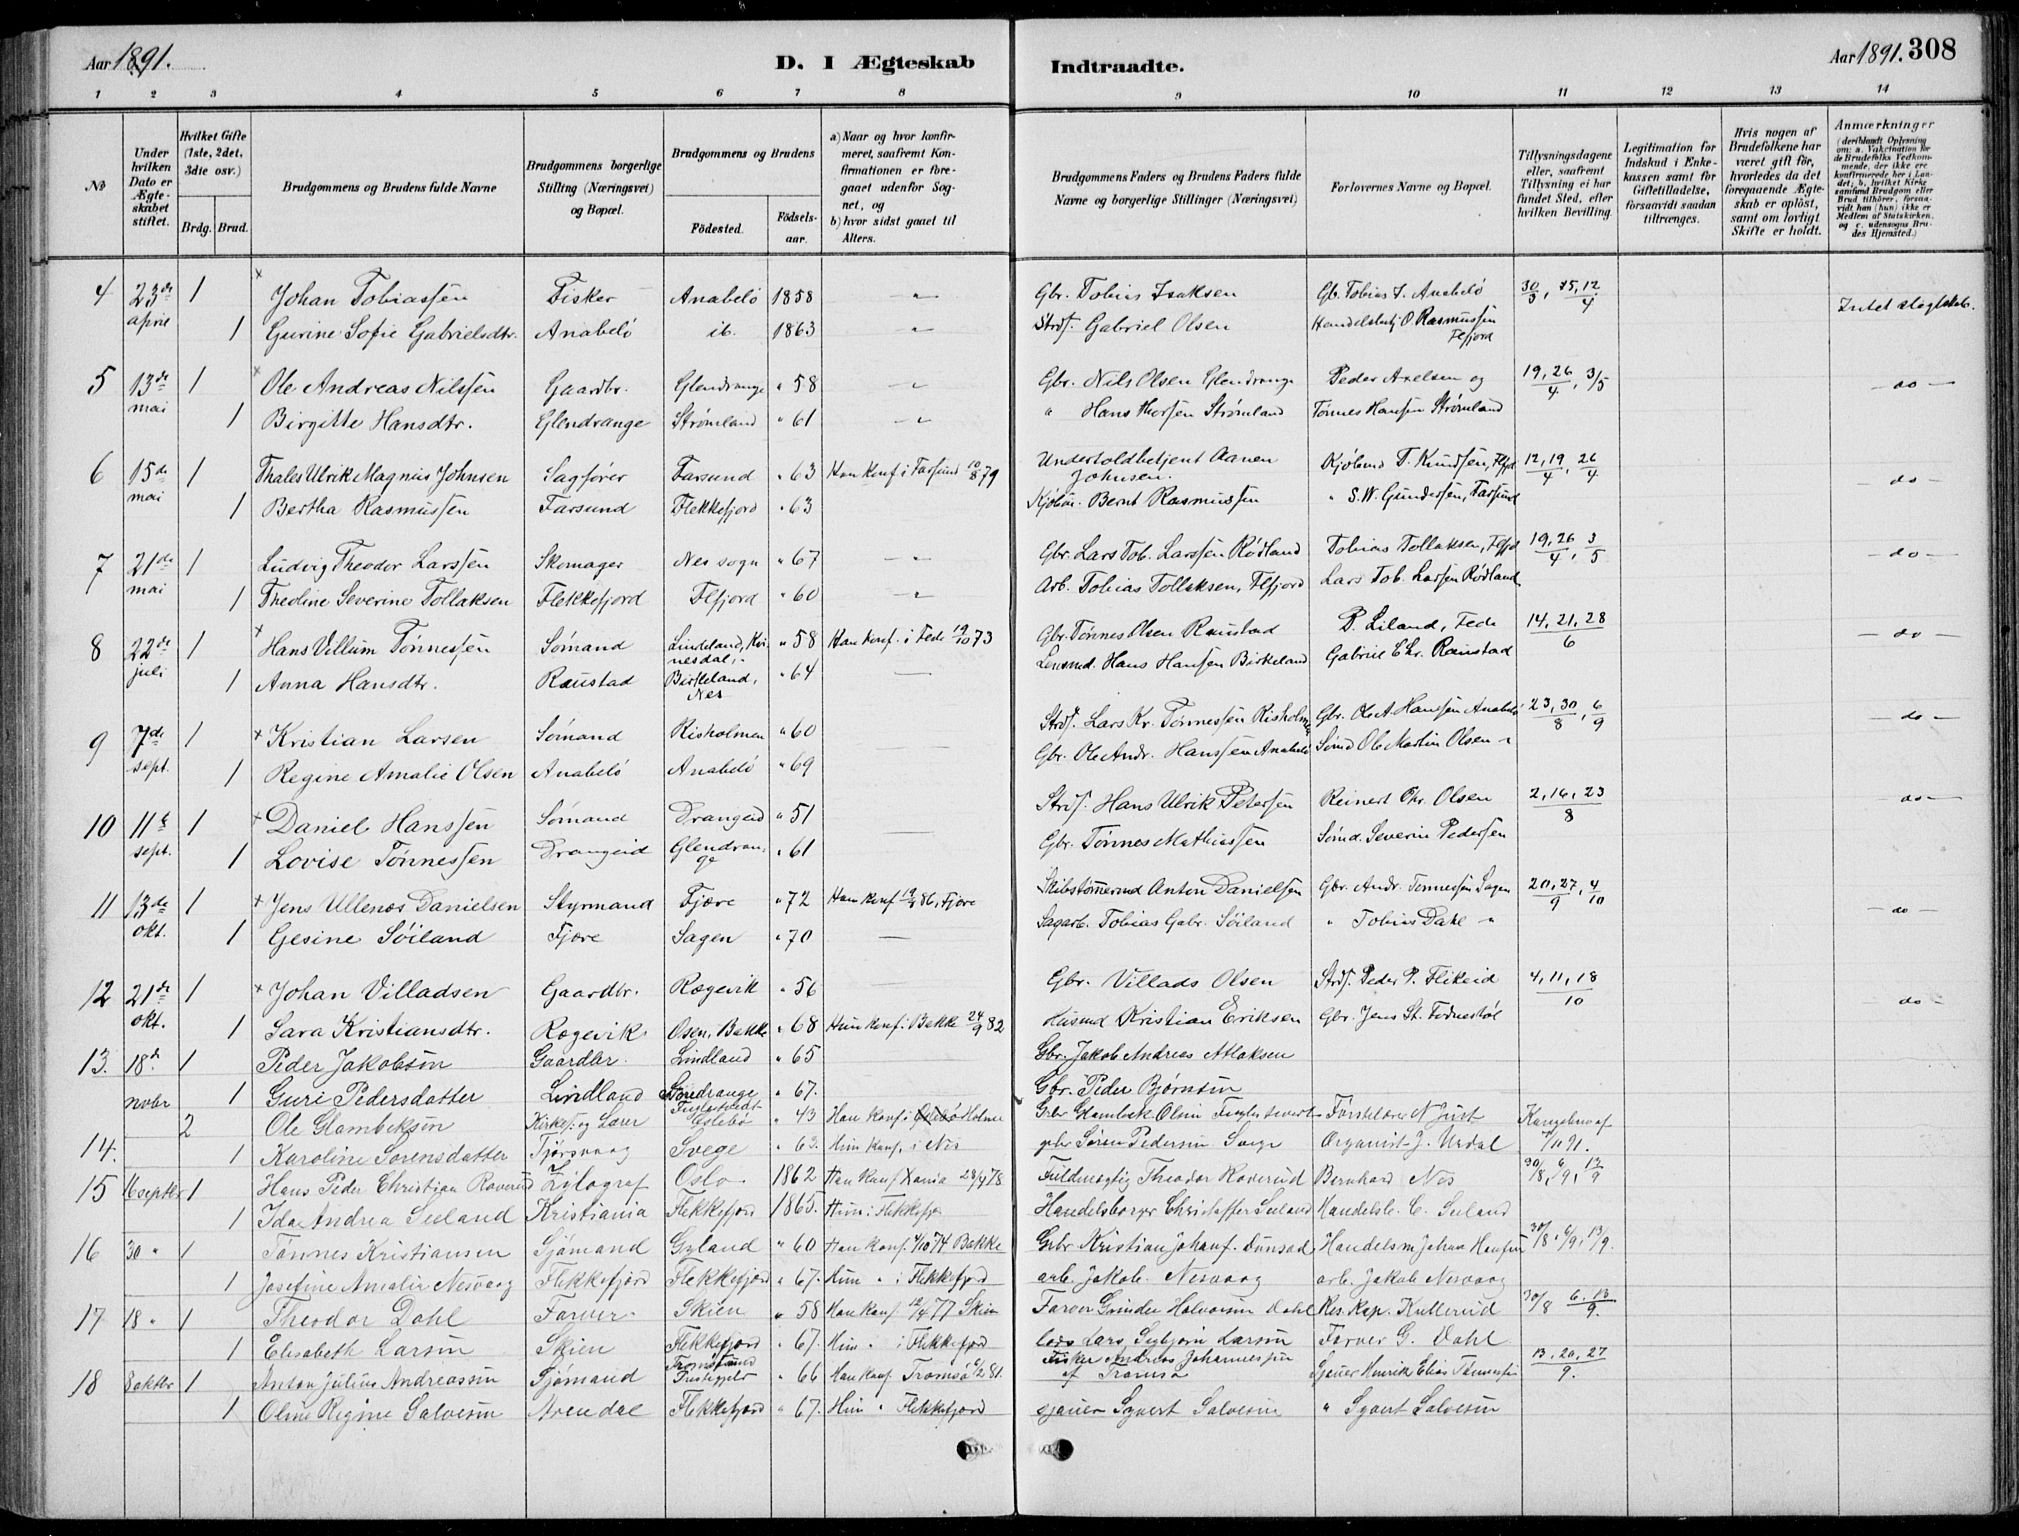 Aar 1891.
D. I Ægteskab
Indtraadte.
Aar 1891. 308
1 2 3 4 5 6 7 8 9 10 11 12 13 14
No
Under hvilken Dato er Ægteskabet stiftet.
Hvilket Gifte (1ste, 2det, 3die osv.)
Brdg. Brud.
Brudgommens og Brudens fulde Navne
Brudgommens borgerlige Stilling (Næringsvei) og Bopæl.
Brudgommens og Brudens
Födested. Födselsaar.
a) Naar og hvor konfirmeret, saafremt Konfirmationen er foregaaet udenfor Sognet, og
b) hvor sidst gaaet til Alters.
Brudgommens Faders og Brudens Faders fulde Navne og borgerlige Stillinger (Næringsvei)
Forlovernes Navne og Bopæl.
Tillysningsdagene eller, saafremt Tillysning ei har fundet Sted, efter hvilken Bevilling.
Legitimation for Indskud i Enkekassen samt for Giftetilladelse, forsaavidt saadan tiltrænges.
Hvis nogen af Brudefolkene har været gift för, hvorledes da det foregaaende Ægteskab er oplöst, samt om lovligt Skifte er holdt.
Anmærkninger (deriblandt Oplysning om: a. Vakcination for de Brudefolks Vedkommende, der ikke ere konfirmerede her i Landet; b. hvilket Kirkesamfund Brudgom eller Brud tilhörer, forsaavidt han (hun) ikke er Medlem af Statskirken, og c. udensogns Brudes Hjemsted.)
4 23de april 1 Johan Tobiassen Fisker Anabelö 1858 " Gbr. Tobias Isaksen Gb. Tobias I. Anabelö 30/3, 5, 12/4 Intet slægtskab.
1 Gurine Sofie Gabrielsdtr. Anabelö ib. 1863 " Strds. Gabriel Olsen Handelsbetj O Rasmussen Flfjord
5 13de mai 1 Ole Andreas Nilssen Gaardbr. Glendrange " 58 " Gbr. Nils Olsen Glendrange Peder Axelsen og 19, 26/4, 3/5 - do -
1 Birgitte Hansdtr. Glendrange Strömland " 61 " " Hans Thorsen Strömland Tönnes Hansen Strömland
6 15de mai 1 Thales Ulrik Magnus Johnsen Sagförer Farsund " 63 Han konf i Farsund 10/8 79 Undertoldbetjent Aanen Johnsen. Kjöbmd T. Knudsen, Flfjd 12, 19/4, 26/4 - do -
1 Bertha Rasmussen Farsund Flekkefjord " 63 Kjöbm. Bernt Rasmussen " S. W. Gundersen, Farsund
7 21de mai 1 Ludvig Theodor Larssen Skomager Nes sogn " 67 " Gbr. Lars Tob. Larssen Rödland Tobias Tollaksen, Flfjd 19, 26/4, 3/5 - do -
1 Theoline Severine Tollaksen Flekkefjord Flfjord " 60 " Arb. Tobias Tollaksen, Flfjord Lars Tob. Larsen Rödland
8 22de juli 1 Hans Villum Tönnessen Sömand Lindeland, Kvinesdal " 58 Han konf. i Fede 19/10 73 Gbr. Tönnes Olsen Raustad P. Liland, Fede 14, 21, 28/6 - do -
1 Anna Hansdtr. Raustad Birkeland, Nes " 64 — Lensmd. Hans Hansen Birkeland Gabriel Chr. Raustad
9 7de sept. 1 Kristian Larsen Sömand Risholmen " 60 Strds. Lars Kr. Tönnessen Risholmen Gbr. Ole A Hanssen Anabelö 23, 30/8, 6/9 - do -
1 Regine Amalie Olsen Anabelö Anabelö " 69 Gbr. Ole Andr. Hanssen Anabelö Sömd Ole Martin Olsen "
10 11te sept. 1 Daniel Hanssen Sömand Drangeid " 51 Strds. Hans Ulrik Petersen Reinert Chr. Olsen 2, 16, 23/8 - do -
1 Lovise Tönnessen Drangeid Glendrange " 61 Gbr. Tönnes Mathiassen Sömd. Severin Pedersen
11 13de okt. 1 Jens Ullenæs Danielsen Styrmand Fjære " 72 Han konf 19/9 86, Fjære Skibstömmermd Anton Danielsen Gbr. Andr. Tönnessen Sagen 20, 27/9, 4/10 - do -
1 Gesine Söiland Fjære Sagen " 70 — Sagarb. Tobias Gabr. Söiland " Tobias Dahl "
12 21de okt. 1 Johan Villadsen Gaardbr. Rægevik " 56 Gbr. Villads Olsen Strds. Peder P. Flikeid 4, 11, 18/10 - do -
1 Sara Kristiansdtr. Rægevik Osen, Bakke " 68 Hun konf i Bakke 24/9 82 Husmd Kristian Eriksen Gbr. Jens St.
13. 18de novbr 1 Peder Jakobsen Gaardbr. Lindland " 65 Gbr. Jakob Andreas Atlaksen
1 Guri Pedersdatter Lindland " 67. Gbr. Peder Björnsen
14. 2 Ole Glambeksen Kirkes. og Lærer Eslebö " 43 Han konf. i Holme Gbr Glambek Olsen Forstlærer N Just Kongebrev af 7/11 91.
1 Karoline Sörensdatter Tjörsvaag Svege " 63. Hun konf. i Nes gbr Sören Pedersen Svege Organist J. Urdal
15 16 septbr 1 Hans Peder Christian Roverud Zylograf Oslo 1862 Han konf Xania 28/4 78. Fuldmægtig Theodor Roverud Bernhard Nes 30/8, 6/9, 13/9
1 Ida Andrea Seeland Kristiania Flekkefjord 1865. Hun i Flekkefj. Handelsborger Christoffer Seeland Handelsb. C. Seeland
16 30 " 1 Tönnes Kristiansen Sjömand Gyland " 60 Han konf. 4/10 74 Bakke Gbr Kristian Johans. Dunsæd Handelsm Johan Hansen 30/8, 6/9, 13/9.
1 Josefine Amalie Nesvaag Flekkefjord Flekkefjord " 67. Hun " i Flekkefjord arb. Jakob Nesvaag arb. Jakob Nesvaag
17 18 " 1 Theodor Dahl Farver Skien " 58 Han konf. 12/4 77 Skien Farver Gunder Halvorsen Dahl Res. Kap. Kullerud 30/8 6. 13/9.
1 Elisabeth Larsen Skien Flekkefjord " 67. Hun " i Flekkefjord Lods Lars Sigbjörn Larsen Farver G. Dahl.
18 8 oktbr 1 Anton Julius Andreassen Sjömand Tromsösund " 66 Han konf. Tromsö 6/2 81. Fisker Andreas Johannessen af Tromsö Sjauer Henrik Elias Tönnessen 13. 20. 27/9.
1 Oline Regine Salvesen Arendal Flekkefjord " 67. Hun " Flekkefjord sjauer Syvert Salvesen " Syvert Salvesen